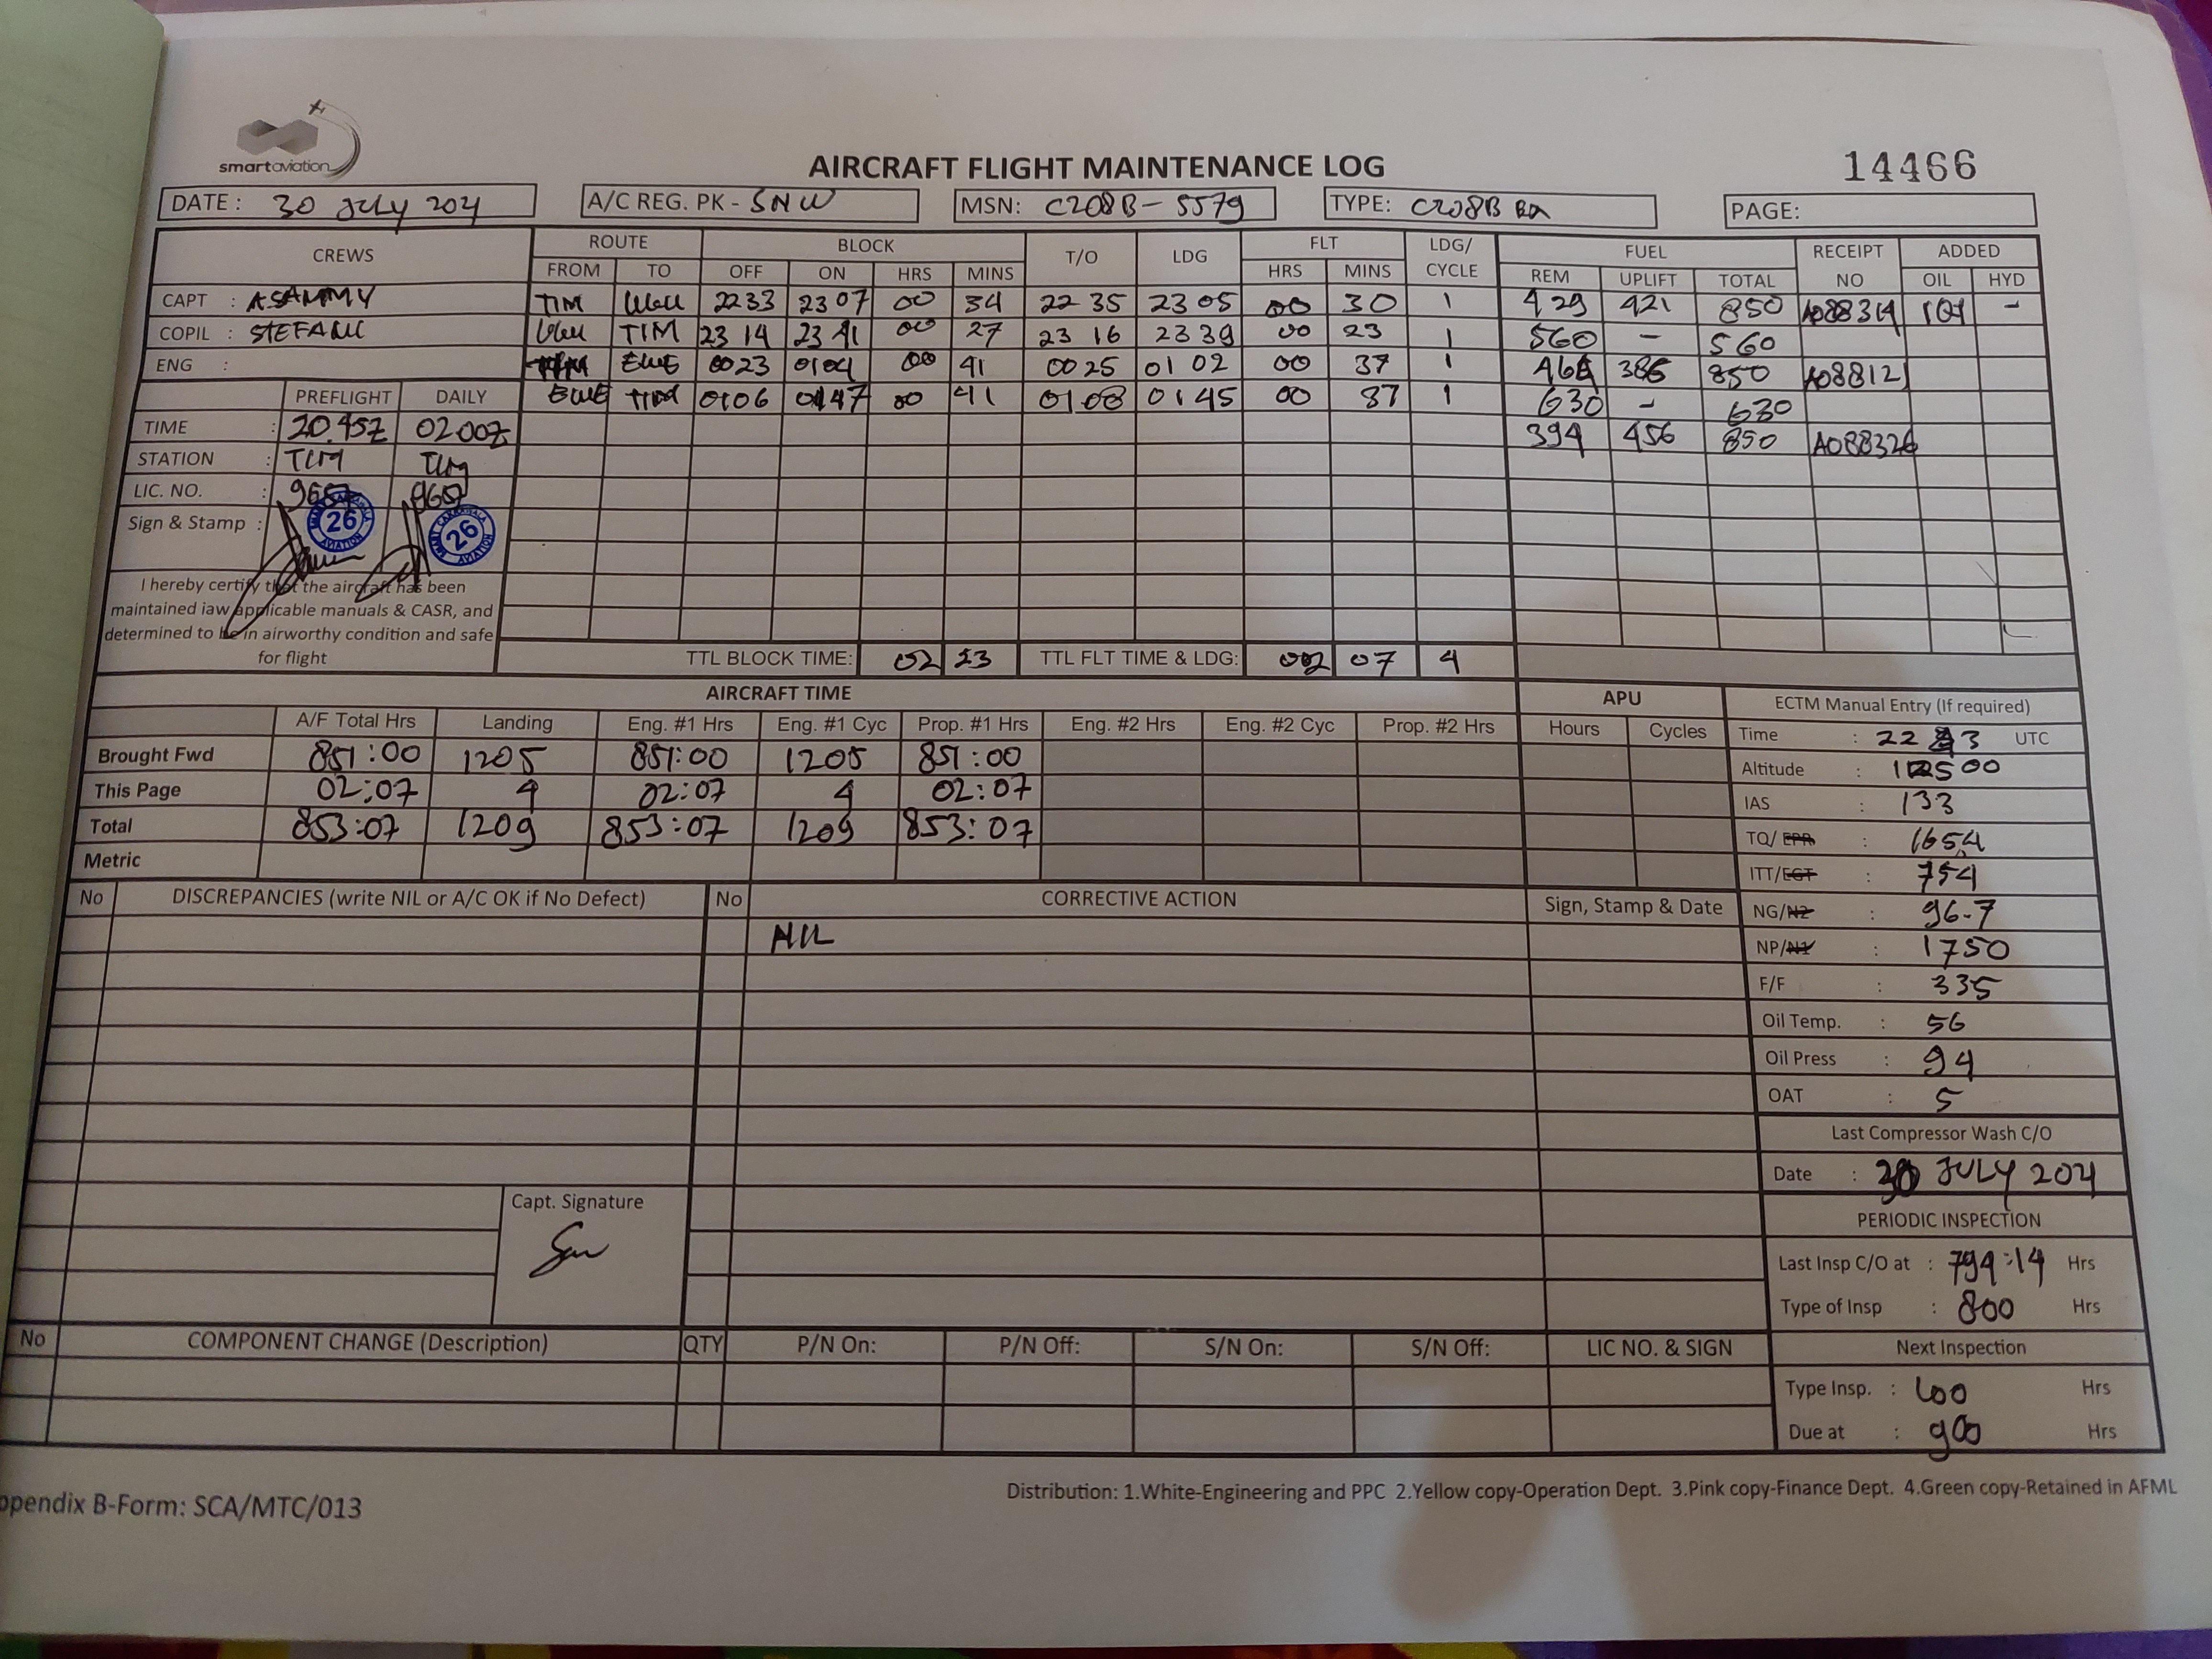 smartaviation
AIRCRAFT FLIGHT MAINTENANCE LOG
14466
DATE : 30 JULY 2021
A/C REG. PK - SNW
MSN: C208B-5579
TYPE: C208B EX
PAGE:
CREWS ROUTE BLOCK T/O LDG FLT LDG/ CYCLE FUEL RECEIPT NO ADDED
FROM TO OFF ON HRS MINS HRS MINS REM UPLIFT TOTAL OIL HYD
CAPT : ASAMMY TIM 2233 2307 00 34 22 35 23 05 00 30 1 429 421 850 -
COPIL : STEFANI TIM 23 14 23 41 00 27 23 16 23 39 00 23 1 560 - 560
ENG : TIM EWE 0023 0104 00 41 0025 01 02 00 37 1 464 386 850 A088121
EWE TIM 0106 0147 00 41 0108 0145 00 37 1 630 - 630
394 456 850 A088326
PREFLIGHT DAILY
TIME : 20.45Z 02.00Z
STATION : TIM TIM
LIC. NO. : 9657 9657
Sign & Stamp :
26 AVIATION
26 AVIATION
I hereby certify that the aircraft has been
maintained iaw applicable manuals & CASR, and
determined to be in airworthy condition and safe
for flight
TTL BLOCK TIME: 02 23 TTL FLT TIME & LDG: 02 07 4
AIRCRAFT TIME APU
A/F Total Hrs Landing Eng. #1 Hrs Eng. #1 Cyc Prop. #1 Hrs Eng. #2 Hrs Eng. #2 Cyc Prop. #2 Hrs Hours Cycles
Brought Fwd 851:00 1205 851:00 1205 851:00
This Page 02:07 4 02:07 4 02:07
Total 853:07 1209 853:07 1209 853:07
Metric
ECTM Manual Entry (If required)
Time : UTC
Altitude :
IAS : 133
TQ/ EPR : 1654
ITT/EGT : 754
NG/N2 : 96.7
NP/N1 : 1750
F/F : 335
Oil Temp. : 56
Oil Press : 94
OAT : 5
Last Compressor Wash C/O
Date : 30 JULY 2021
PERIODIC INSPECTION
Last Insp C/O at : 794:14 Hrs
Type of Insp : 800 Hrs
Next Inspection
Type Insp. : 100 Hrs
Due at : 900 Hrs
No DISCREPANCIES (write NIL or A/C OK if No Defect) No CORRECTIVE ACTION Sign, Stamp & Date
NIL
Capt. Signature
No COMPONENT CHANGE (Description) QTY P/N On: P/N Off: S/N On: S/N Off: LIC NO. & SIGN
ppendix B-Form: SCA/MTC/013
Distribution: 1.White-Engineering and PPC 2.Yellow copy-Operation Dept. 3.Pink copy-Finance Dept. 4.Green copy-Retained in AFML